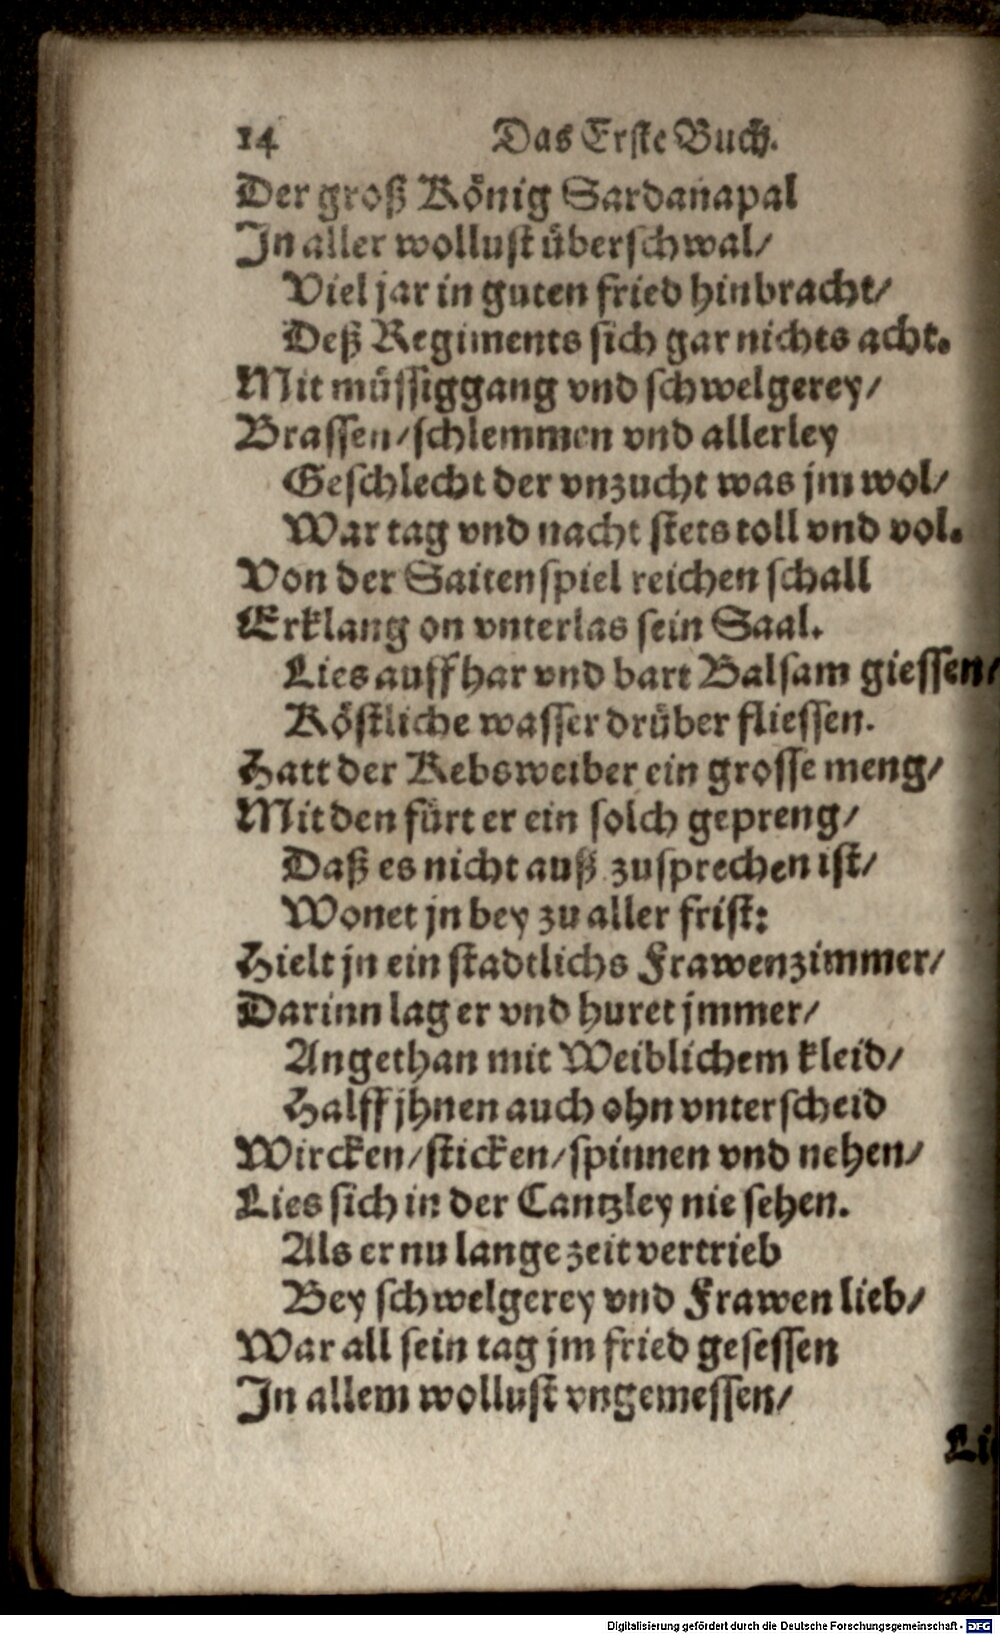 14 Das Erste Buch.
Der groß König Sardanapal
In aller wollust überschwal/
Viel jar in guten fried hinbracht/
Deß Regiments sich gar nichts acht.
Mit müssiggang vnd schwelgerey/
Brassen/schlemmen vnd allerley
Geschlecht der vnzucht was jm wol/
War tag vnd nacht stets toll vnd vol.
Von der Saitenspiel reichen schall
Erklang on vnterlas sein Saal.
Lies auff har vnd bart Balsam giessen/
Köstliche wasser drüber fliessen.
Hatt der Kebsweiber ein grosse meng/
Mit den fürt er ein solch gepreng/
Daß es nicht auß zusprechen ist/
Wonet jn bey zu aller frist:
Hielt jn ein stadtlichs Frawenzimmer/
Darinn lag er vnd huret jmmer/
Angethan mit Weiblichem kleid/
Halff jhnen auch ohn vnterscheid
Wircken/sticken/spinnen vnd nehen/
Lies sich in der Cantzley nie sehen.
Als er nu lange zeit vertrieb
Bey schwelgerey vnd Frawen lieb/
War all sein tag jm fried gesessen
In allem wollust vngemessen/
Li
Digitalisierung gefördert durch die Deutsche Forschungsgemeinschaft - DFG